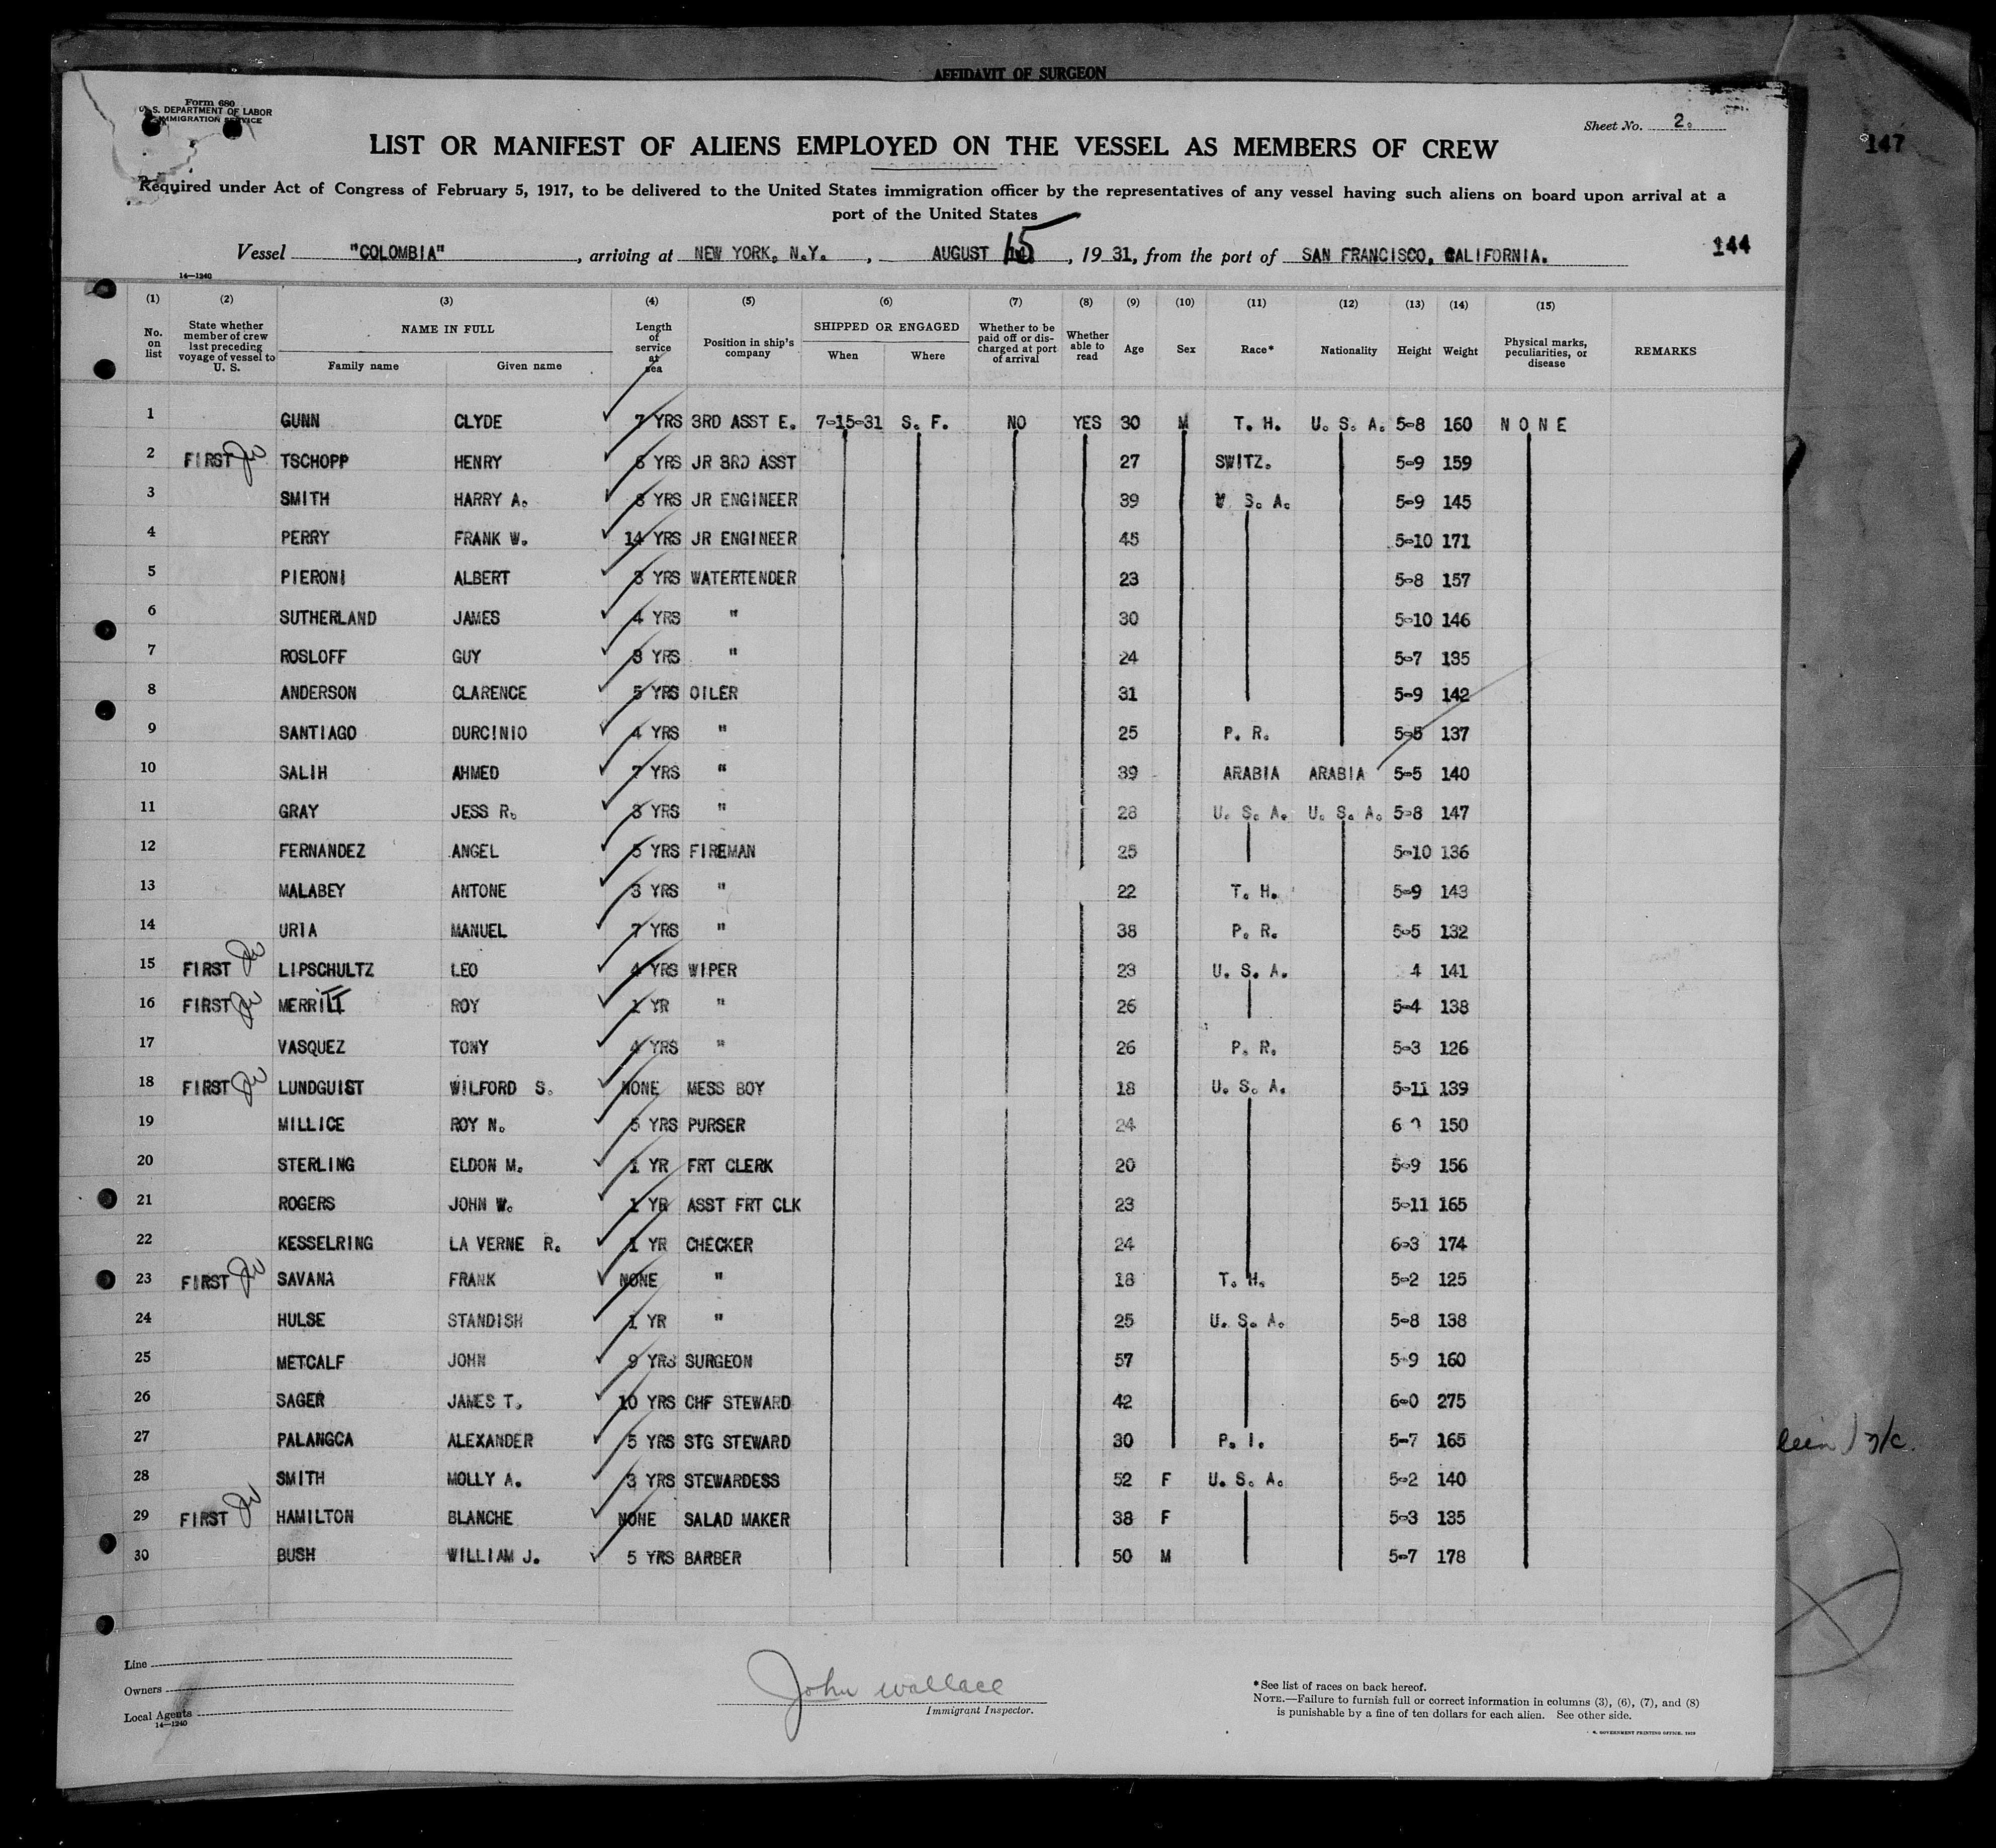 AFFIDAVIT OF SURGEON
Form 680
U. S. DEPARTMENT OF LABOR
IMMIGRATION SERVICE
Sheet No. 2.
147
LIST OR MANIFEST OF ALIENS EMPLOYED ON THE VESSEL AS MEMBERS OF CREW
Required under Act of Congress of February 5, 1917, to be delivered to the United States immigration officer by the representatives of any vessel having such aliens on board upon arrival at a
port of the United States
Vessel "COLOMBIA", arriving at NEW YORK, N.Y., AUGUST 15, 1931, from the port of SAN FRANCISCO, CALIFORNIA. 144
14—1240
(1) (2) (3) (4) (5) (6) (7) (8) (9) (10) (11) (12) (13) (14) (15)
No. on list State whether member of crew last preceding voyage of vessel to U. S. NAME IN FULL Family name Given name Length of service at sea Position in ship's company SHIPPED OR ENGAGED When Where Whether to be paid off or discharged at port of arrival Whether able to read Age Sex Race* Nationality Height Weight Physical marks, peculiarities, or disease REMARKS
1 GUNN CLYDE 7 YRS 3RD ASST E. 7-15-31 S. F. NO YES 30 M T. H. U. S. A. 5-8 160 NONE
2 FIRST TSCHOPP HENRY 6 YRS JR 3RD ASST 27 SWITZ. 5-9 159
3 SMITH HARRY A. 8 YRS JR ENGINEER 39 U S. A. 5-9 145
4 PERRY FRANK W. 14 YRS JR ENGINEER 45 5-10 171
5 PIERONI ALBERT 3 YRS WATERTENDER 23 5-8 157
6 SUTHERLAND JAMES 4 YRS " 30 5-10 146
7 ROSLOFF GUY 3 YRS " 24 5-7 135
8 ANDERSON CLARENCE 5 YRS OILER 31 5-9 142
9 SANTIAGO DURCINIO 4 YRS " 25 P. R. 5-5 137
10 SALIH AHMED 7 YRS " 39 ARABIA ARABIA 5-5 140
11 GRAY JESS R. 3 YRS " 28 U. S. A. U. S. A. 5-8 147
12 FERNANDEZ ANGEL 5 YRS FIREMAN 25 5-10 136
13 MALABEY ANTONE 3 YRS " 22 T. H. 5-9 143
14 URIA MANUEL 7 YRS " 38 P. R. 5-5 132
15 FIRST LIPSCHULTZ LEO 4 YRS WIPER 23 U. S. A. 4 141
16 FIRST MERRITT ROY 1 YR " 26 5-4 138
17 VASQUEZ TONY 4 YRS " 26 P. R. 5-3 126
18 FIRST LUNDGUIST WILFORD S. NONE MESS BOY 18 U. S. A. 5-11 139
19 MILLICE ROY N. 5 YRS PURSER 24 6 0 150
20 STERLING ELDON M. 1 YR FRT CLERK 20 5-9 156
21 ROGERS JOHN W. 1 YR ASST FRT CLK 23 5-11 165
22 KESSELRING LA VERNE R. 1 YR CHECKER 24 6-3 174
23 FIRST SAVANA FRANK NONE " 18 T. H. 5-2 125
24 HULSE STANDISH 1 YR " 25 U. S. A. 5-8 138
25 METCALF JOHN 9 YRS SURGEON 57 5-9 160
26 SAGER JAMES T. 10 YRS CHF STEWARD 42 6-0 275
27 PALANGCA ALEXANDER 5 YRS STG STEWARD 30 P. I. 5-7 165
28 SMITH MOLLY A. 3 YRS STEWARDESS 52 F U. S. A. 5-2 140
29 FIRST HAMILTON BLANCHE NONE SALAD MAKER 38 F 5-3 135
30 BUSH WILLIAM J. 5 YRS BARBER 50 M 5-7 178
Line
Owners
Local Agents
14—1240
John Wallace
Immigrant Inspector.
*See list of races on back hereof.
NOTE.—Failure to furnish full or correct information in columns (3), (6), (7), and (8)
is punishable by a fine of ten dollars for each alien. See other side.
GOVERNMENT PRINTING OFFICE, 1929